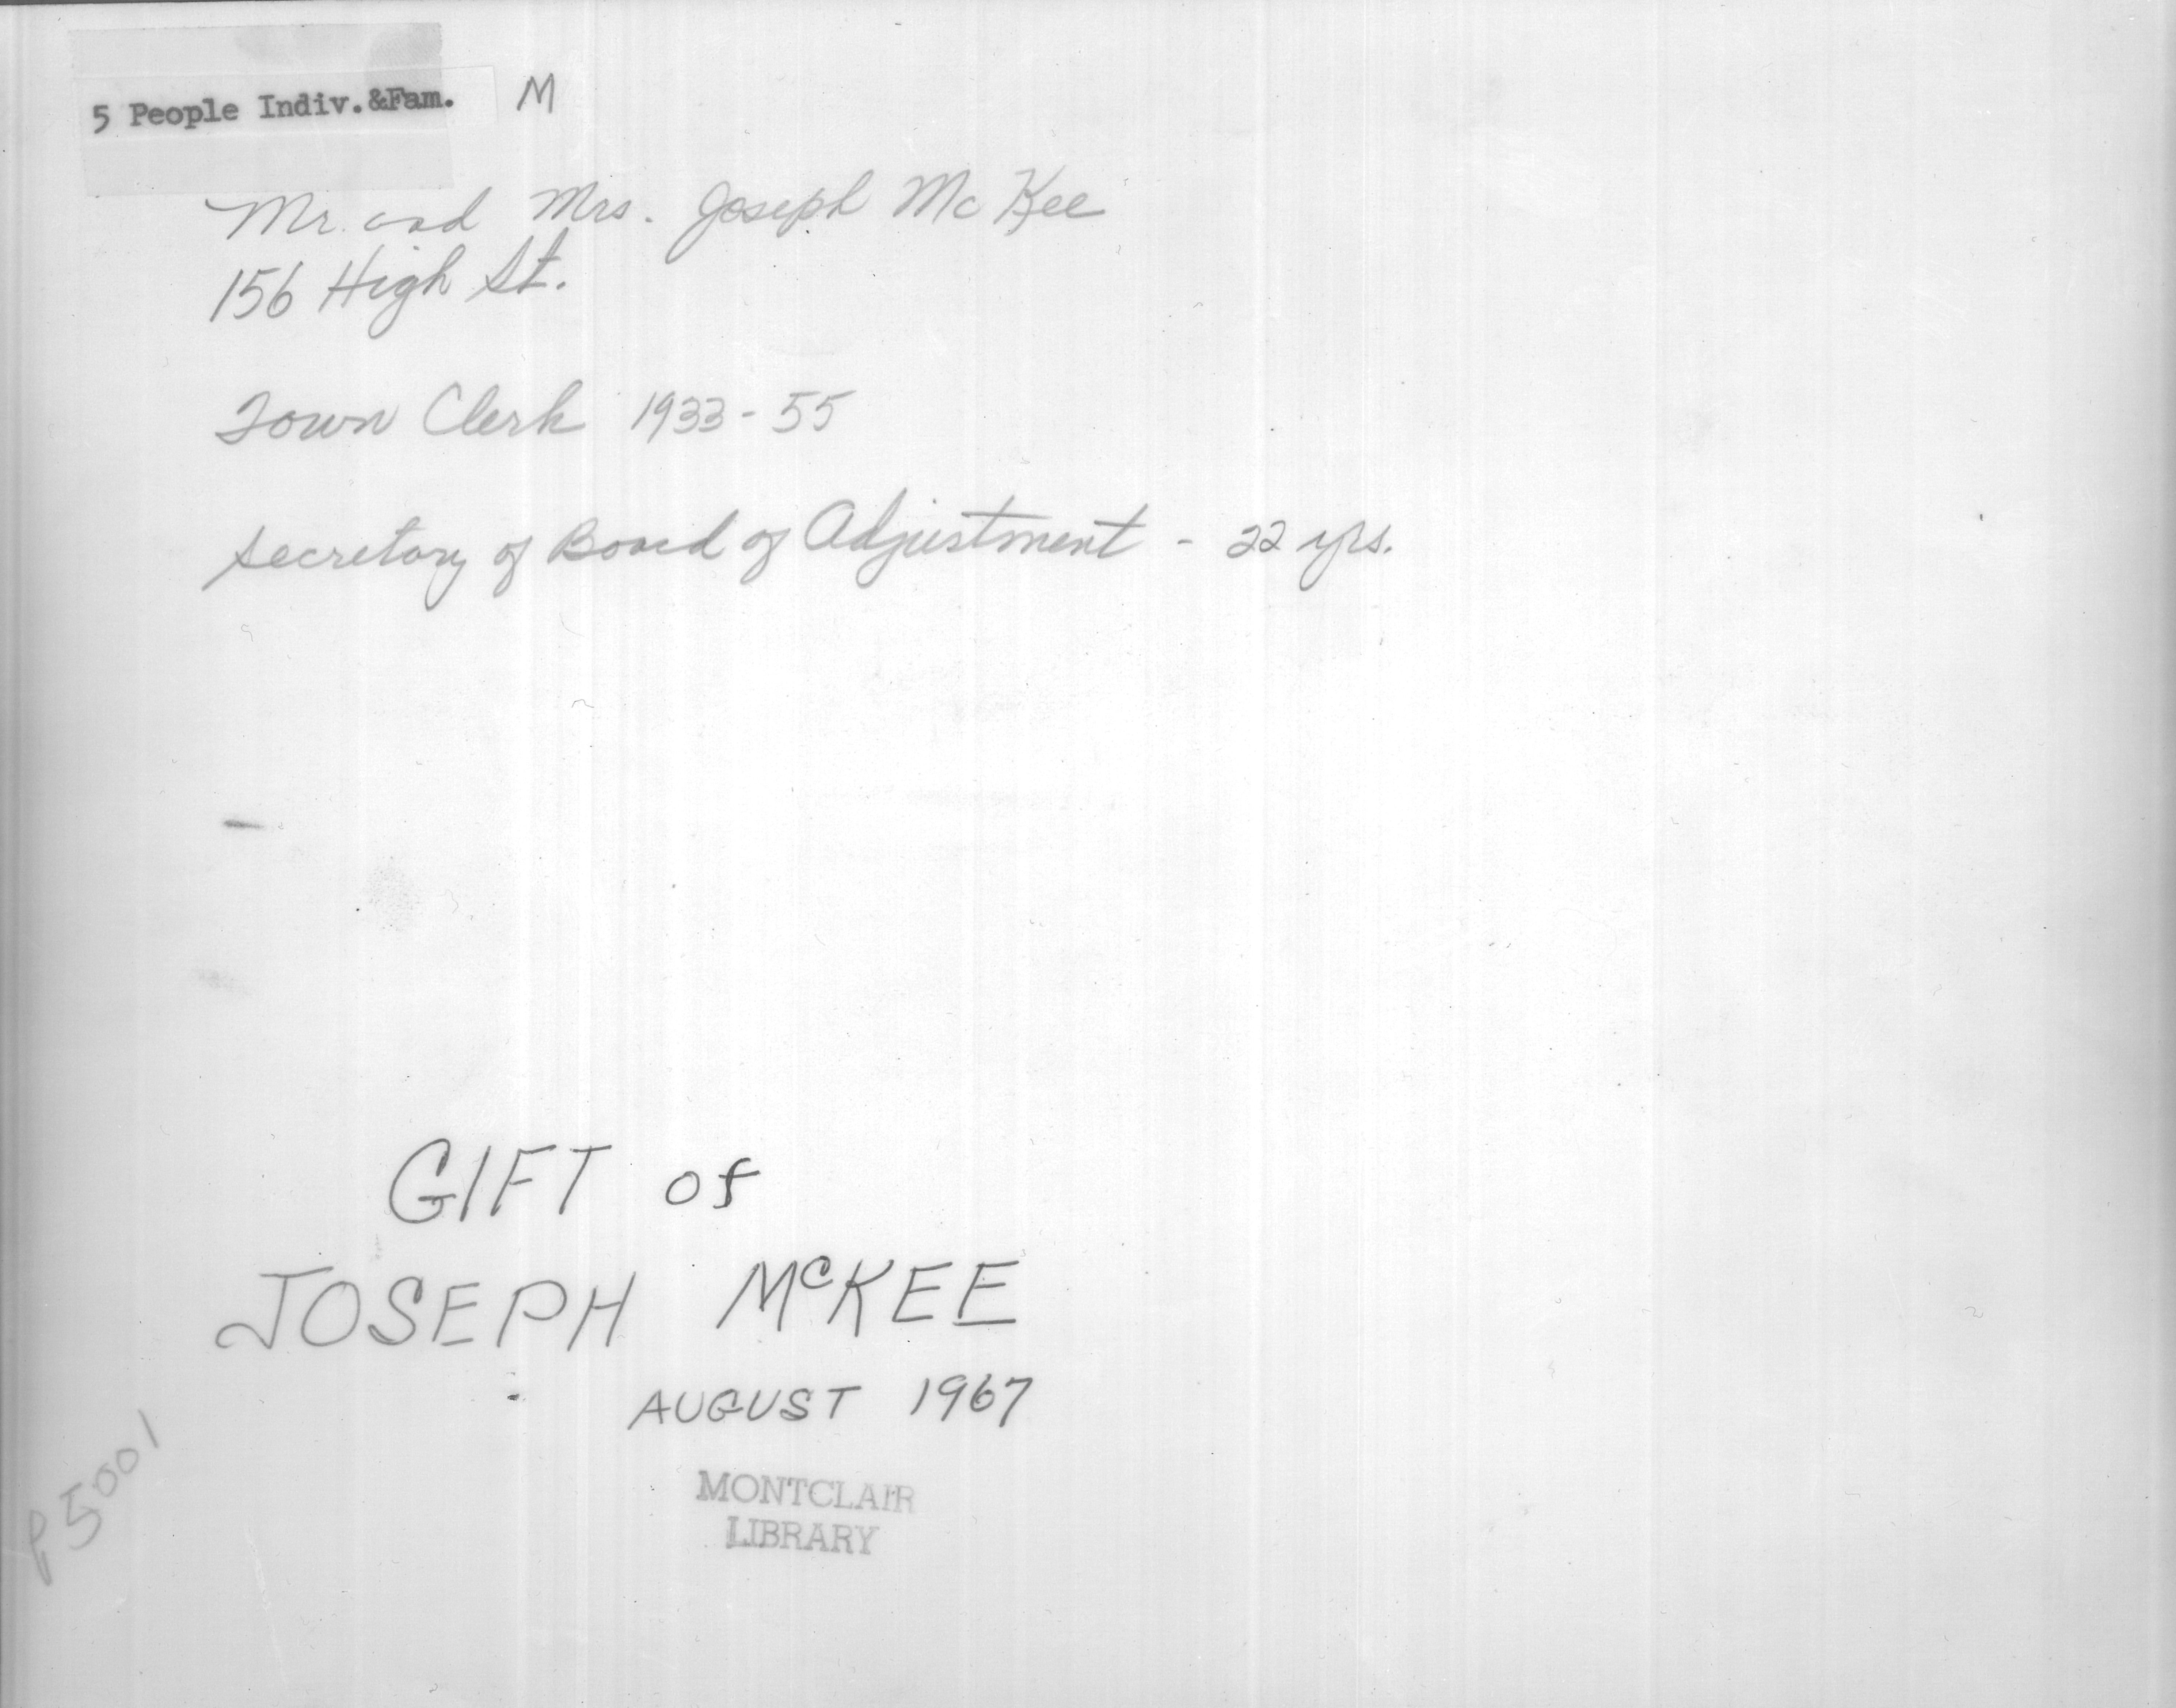 5 People Indiv.&Fam. M
Mr. and Mrs. Joseph McKee
156 High St.
Town Clerk 1933-55
Secretary of Board of Adjustment - 22 yrs.
GIFT of
JOSEPH McKEE
AUGUST 1967
MONTCLAIR
LIBRARY
p5001